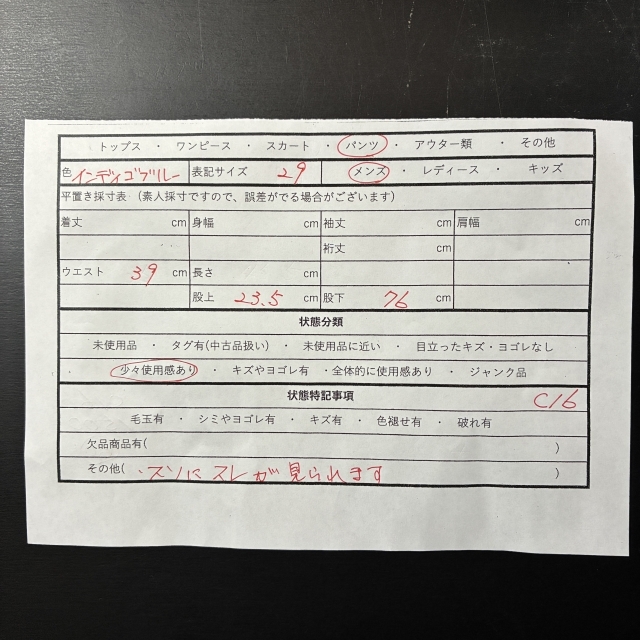 トップス ・ ワンピース ・ スカート ・ パンツ ・ アウター類 ・ その他
色 インディゴブルー 表記サイズ 29 メンズ ・ レディース ・ キッズ
平置き採寸表（素人採寸ですので、誤差がでる場合がございます）
着丈 cm 身幅 cm 袖丈 cm 肩幅 cm
裄丈 cm
ウエスト 39 cm 長さ cm
股上 23.5 cm 股下 76 cm
状態分類
未使用品 ・ タグ有(中古品扱い) ・ 未使用品に近い ・ 目立ったキズ・ヨゴレなし
・ 少々使用感あり ・ キズやヨゴレ有 ・全体的に使用感あり ・ ジャンク品
状態特記事項 C16
毛玉有 ・ シミやヨゴレ有 ・ キズ有 ・ 色褪せ有 ・ 破れ有
欠品商品有( )
その他( ・スソにスレが見られます )